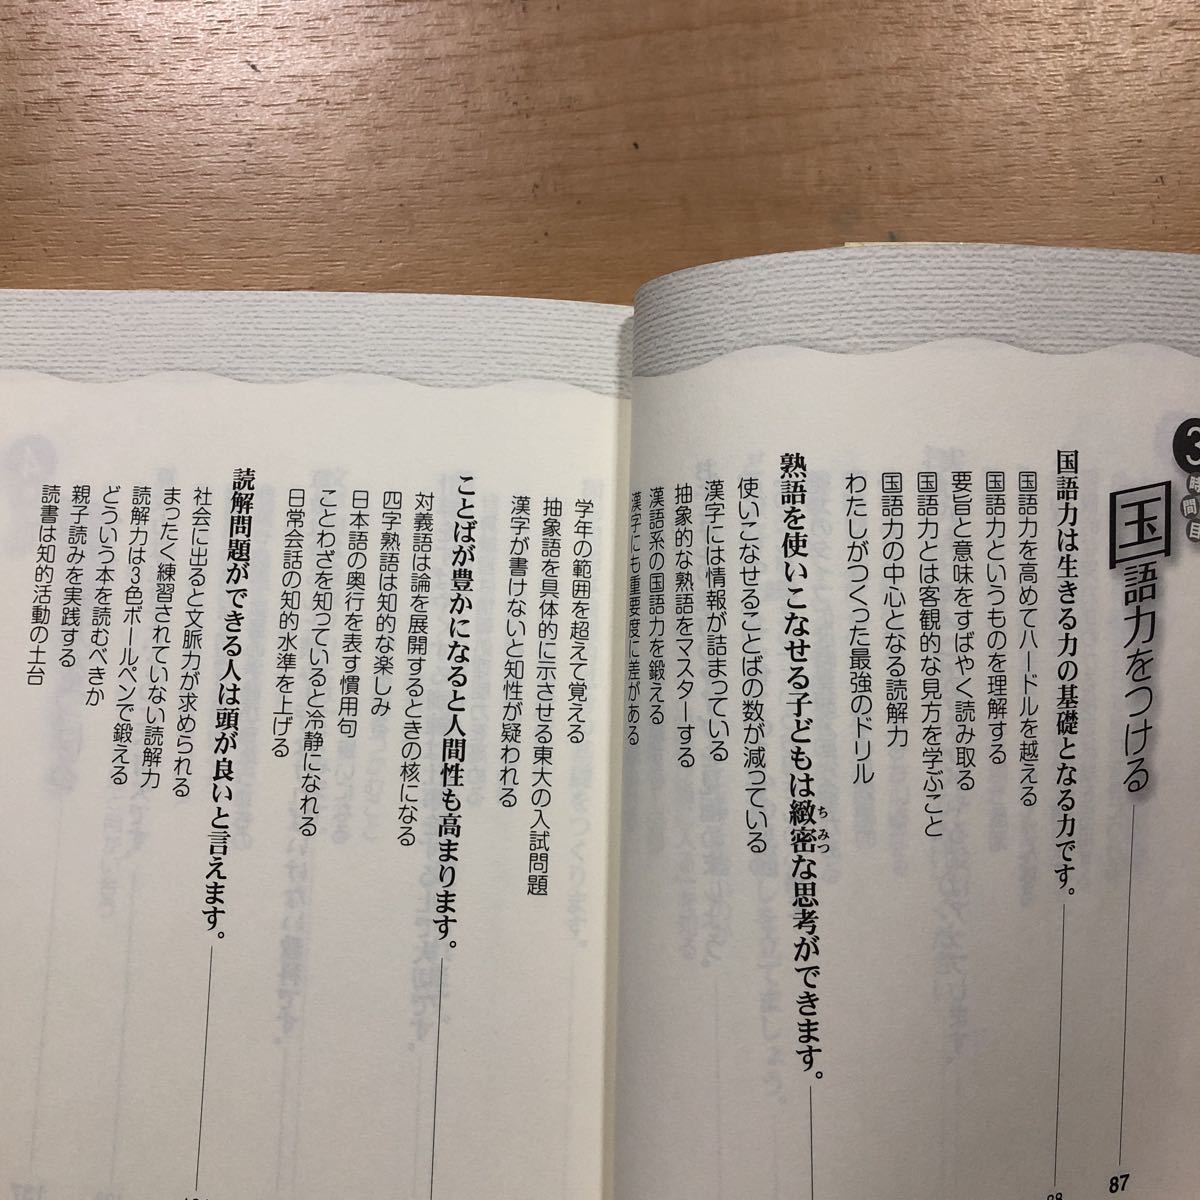 3時間目
国語力をつける
87
国語力は生きる力の基礎となる力です。
国語力を高めてハードルを越える
国語力というものを理解する
要旨と意味をすばやく読み取る
国語力とは客観的な見方を学ぶこと
国語力の中心となる読解力
わたしがつくった最強のドリル
熟語を使いこなせる子どもは緻密な思考ができます。
ちみつ
使いこなせることばの数が減っている
漢字には情報が詰まっている
抽象的な熟語をマスターする
漢語系の国語力を鍛える
漢字にも重要度に差がある
学年の範囲を超えて覚える
抽象語を具体的に示させる東大の入試問題
漢字が書けないと知性が疑われる
ことばが豊かになると人間性も高まります。
対義語は論を展開するときの核になる
四字熟語は知的な楽しみ
日本語の奥行を表す慣用句
ことわざを知っていると冷静になれる
日常会話の知的水準を上げる
読解問題ができる人は頭が良いと言えます。
社会に出ると文脈力が求められる
まったく練習されていない読解力
読解力は3色ボールペンで鍛える
どういう本を読むべきか
親子読みを実践する
読書は知的活動の土台